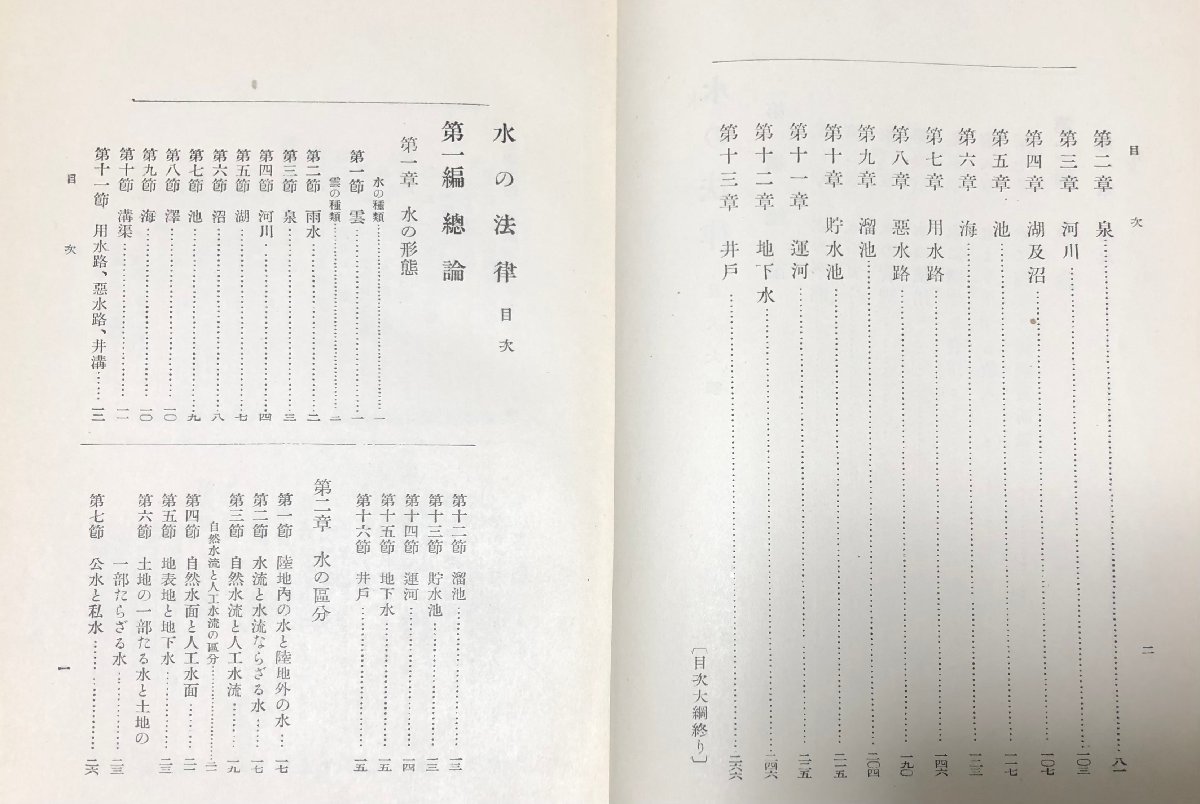 目次
二
第二章 泉……八一
第三章 河川……一〇三
第四章 湖及沼……一〇七
第五章 池……一一七
第六章 海……一二三
第七章 用水路……一四六
第八章 惡水路……一九〇
第九章 溜池……二〇四
第十章 貯水池……二一五
第十一章 運河……二二五
第十二章 地下水……二四六
第十三章 井戶……二六六
〔目次大綱終り〕
水の法律 目次
第一編 總論
第一章 水の形態
水の種類……一
第一節 雲……一
雲の種類……二
第二節 雨水……二
第三節 泉……三
第四節 河川……四
第五節 湖……七
第六節 沼……八
第七節 池……九
第八節 澤……一〇
第九節 海……一〇
第十節 溝渠……一一
第十一節 用水路、惡水路、井溝……一二
第十二節 溜池……一三
第十三節 貯水池……一三
第十四節 運河……一四
第十五節 地下水……一五
第十六節 井戶……一五
第二章 水の區分
第一節 陸地內の水と陸地外の水…一七
第二節 水流と水流ならざる水……一七
第三節 自然水流と人工水流……一九
自然水流と人工水流の區分……二一
第四節 自然水面と人工水面……二一
第五節 地表地と地下水……二三
第六節 土地の一部たる水と土地の
一部たらざる水……二三
第七節 公水と私水……二六
目次
一